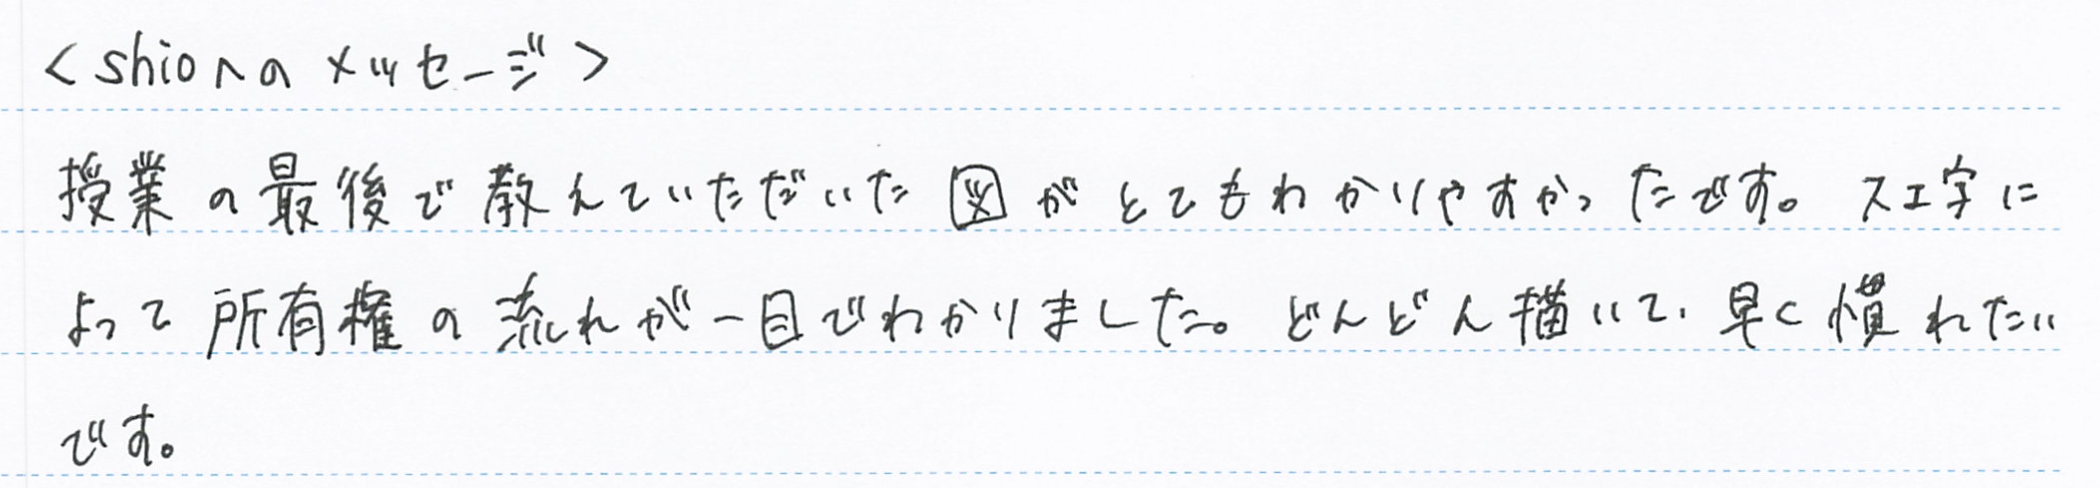 <shioへのメッセージ>
授業の最後で教えていただいた図がとてもわかりやすかったです。スエ字に
よって所有権の流れが一目でわかりました。どんどん描いて、早く慣れたい
です。